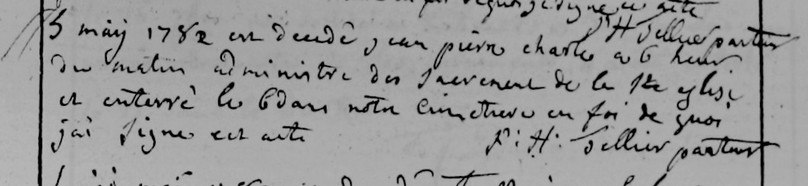 signé cet acte
f: H: Sellier pasteur
5 maÿ 1782 est decedé jean pierre charle a 6 heur
du matin administre des sacrement de la Ste eglise
et enterré le 6 dans notre cimetiere en foi de quoi
j'ai signe cet acte f: H: Sellier pasteur